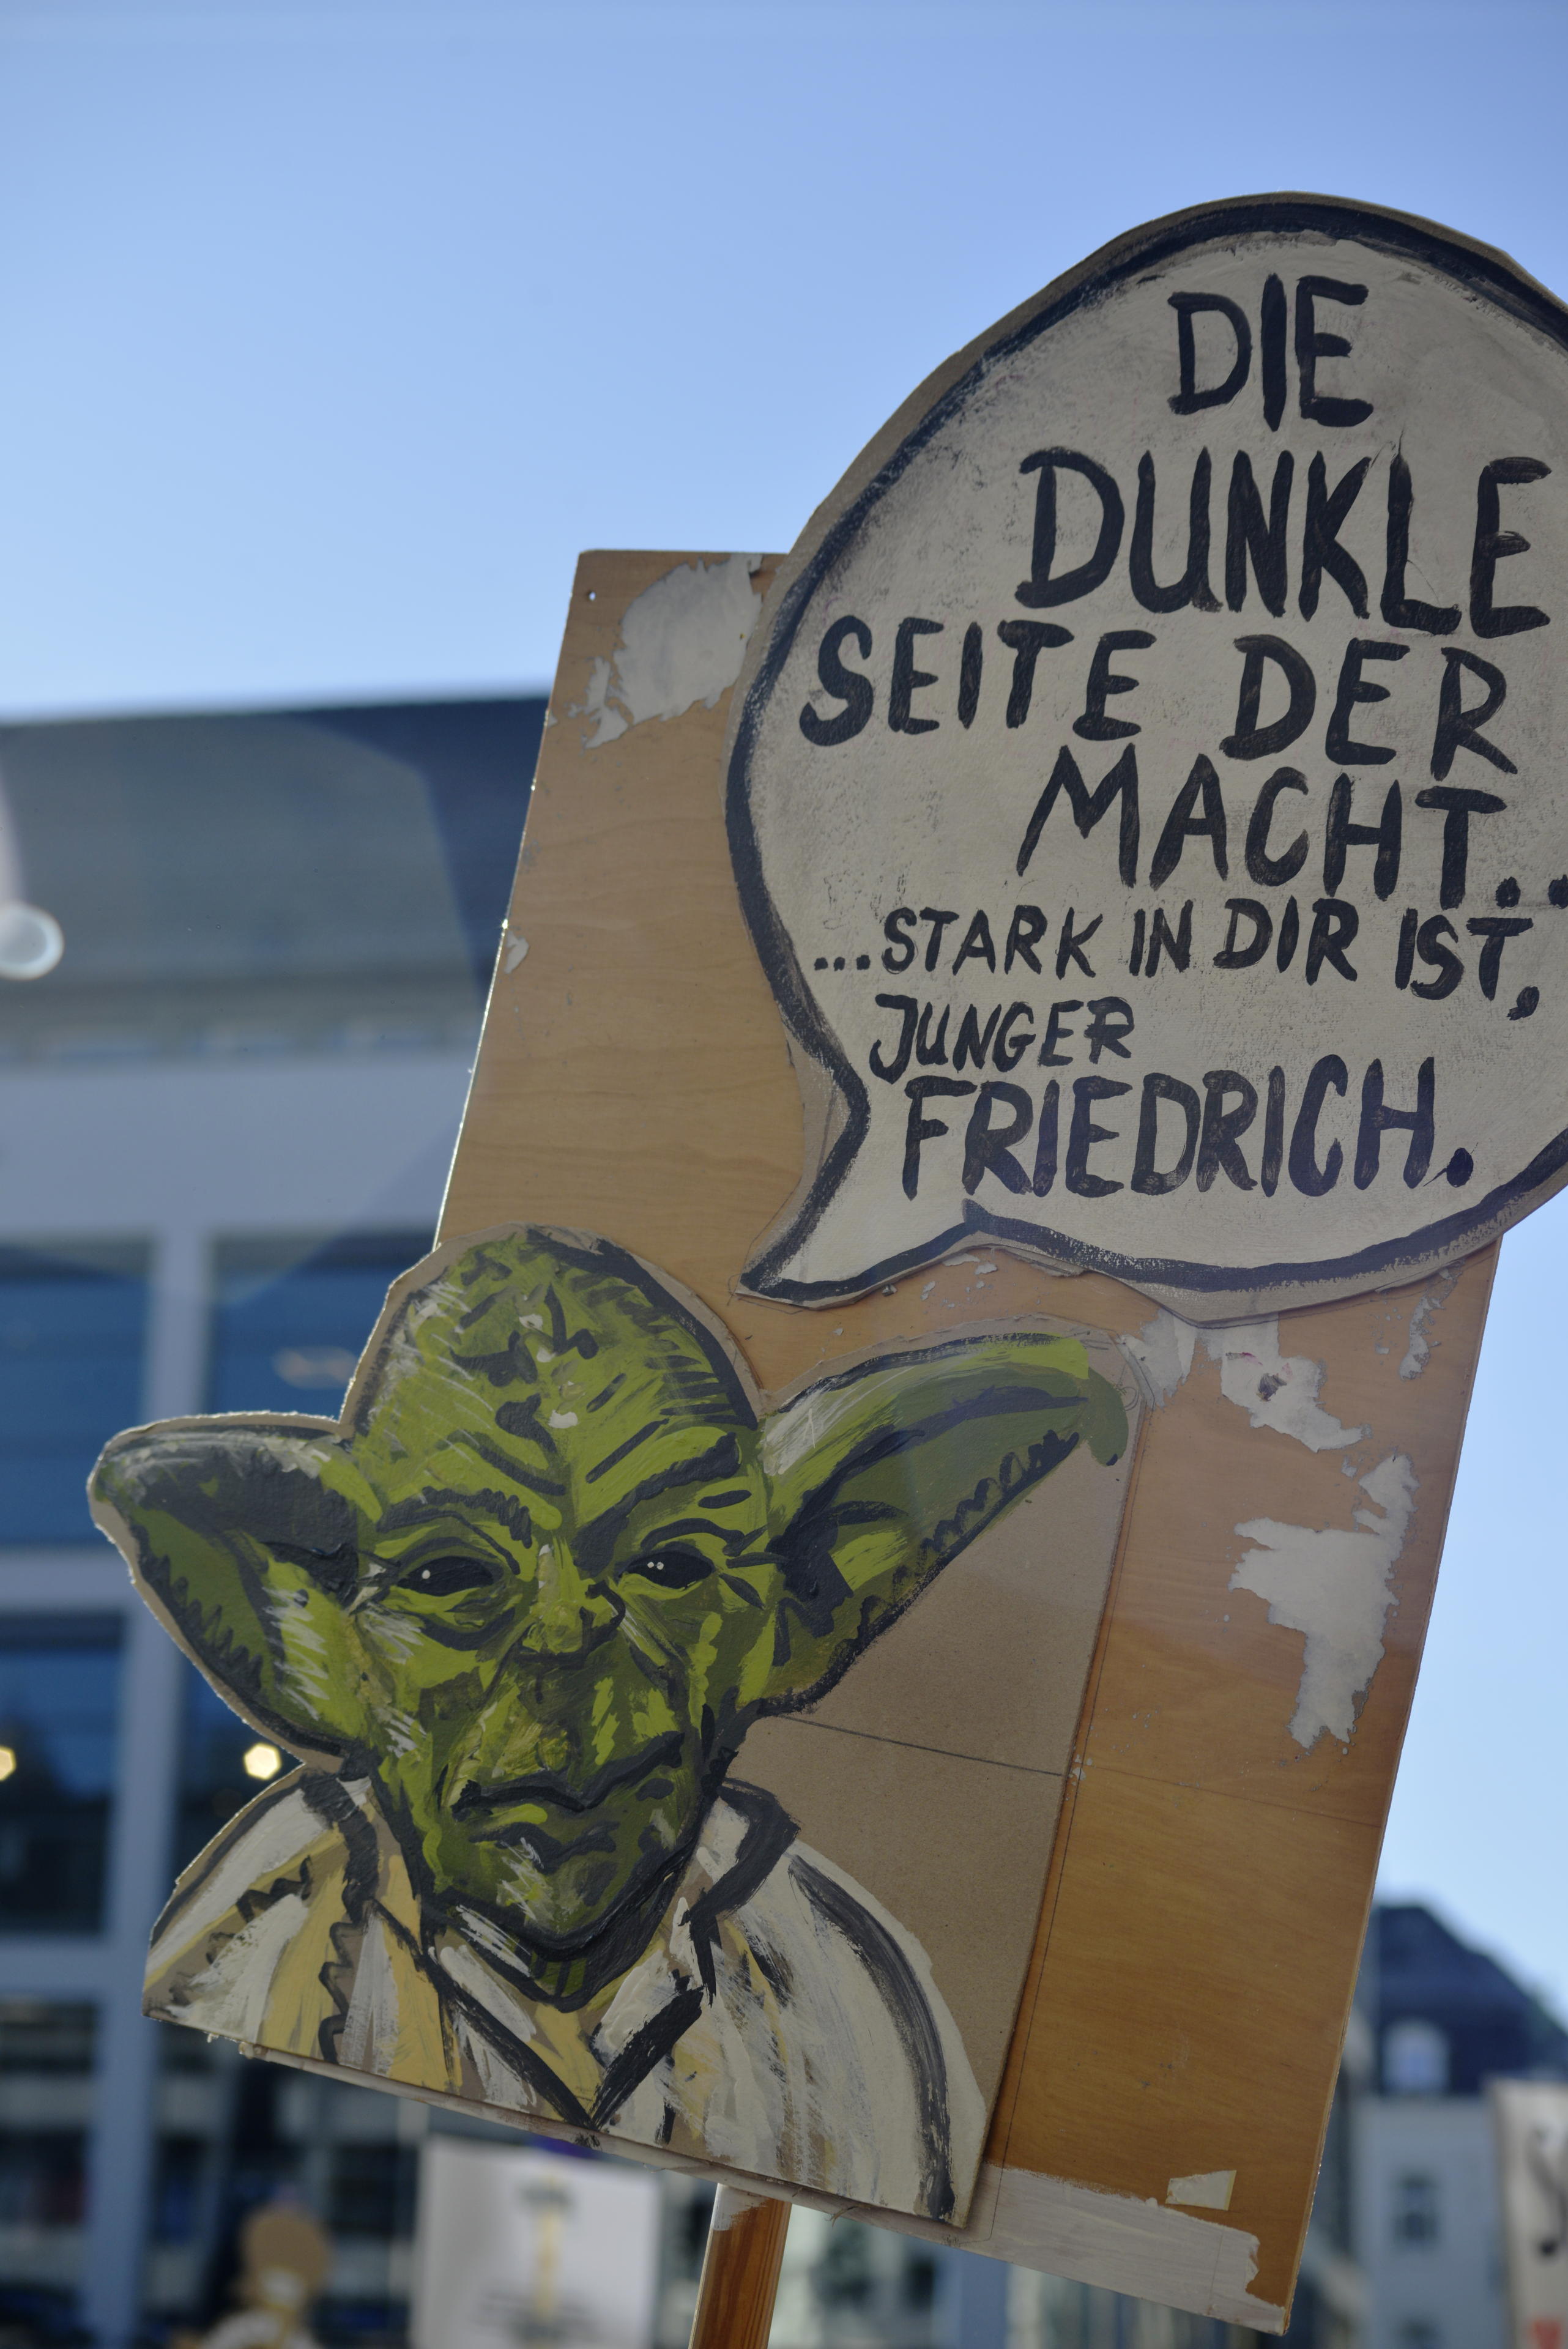 DIE
DUNKLE
SEITE DER
MACHT..
...STARK IN DIR IST,
JUNGER
FRIEDRICH.